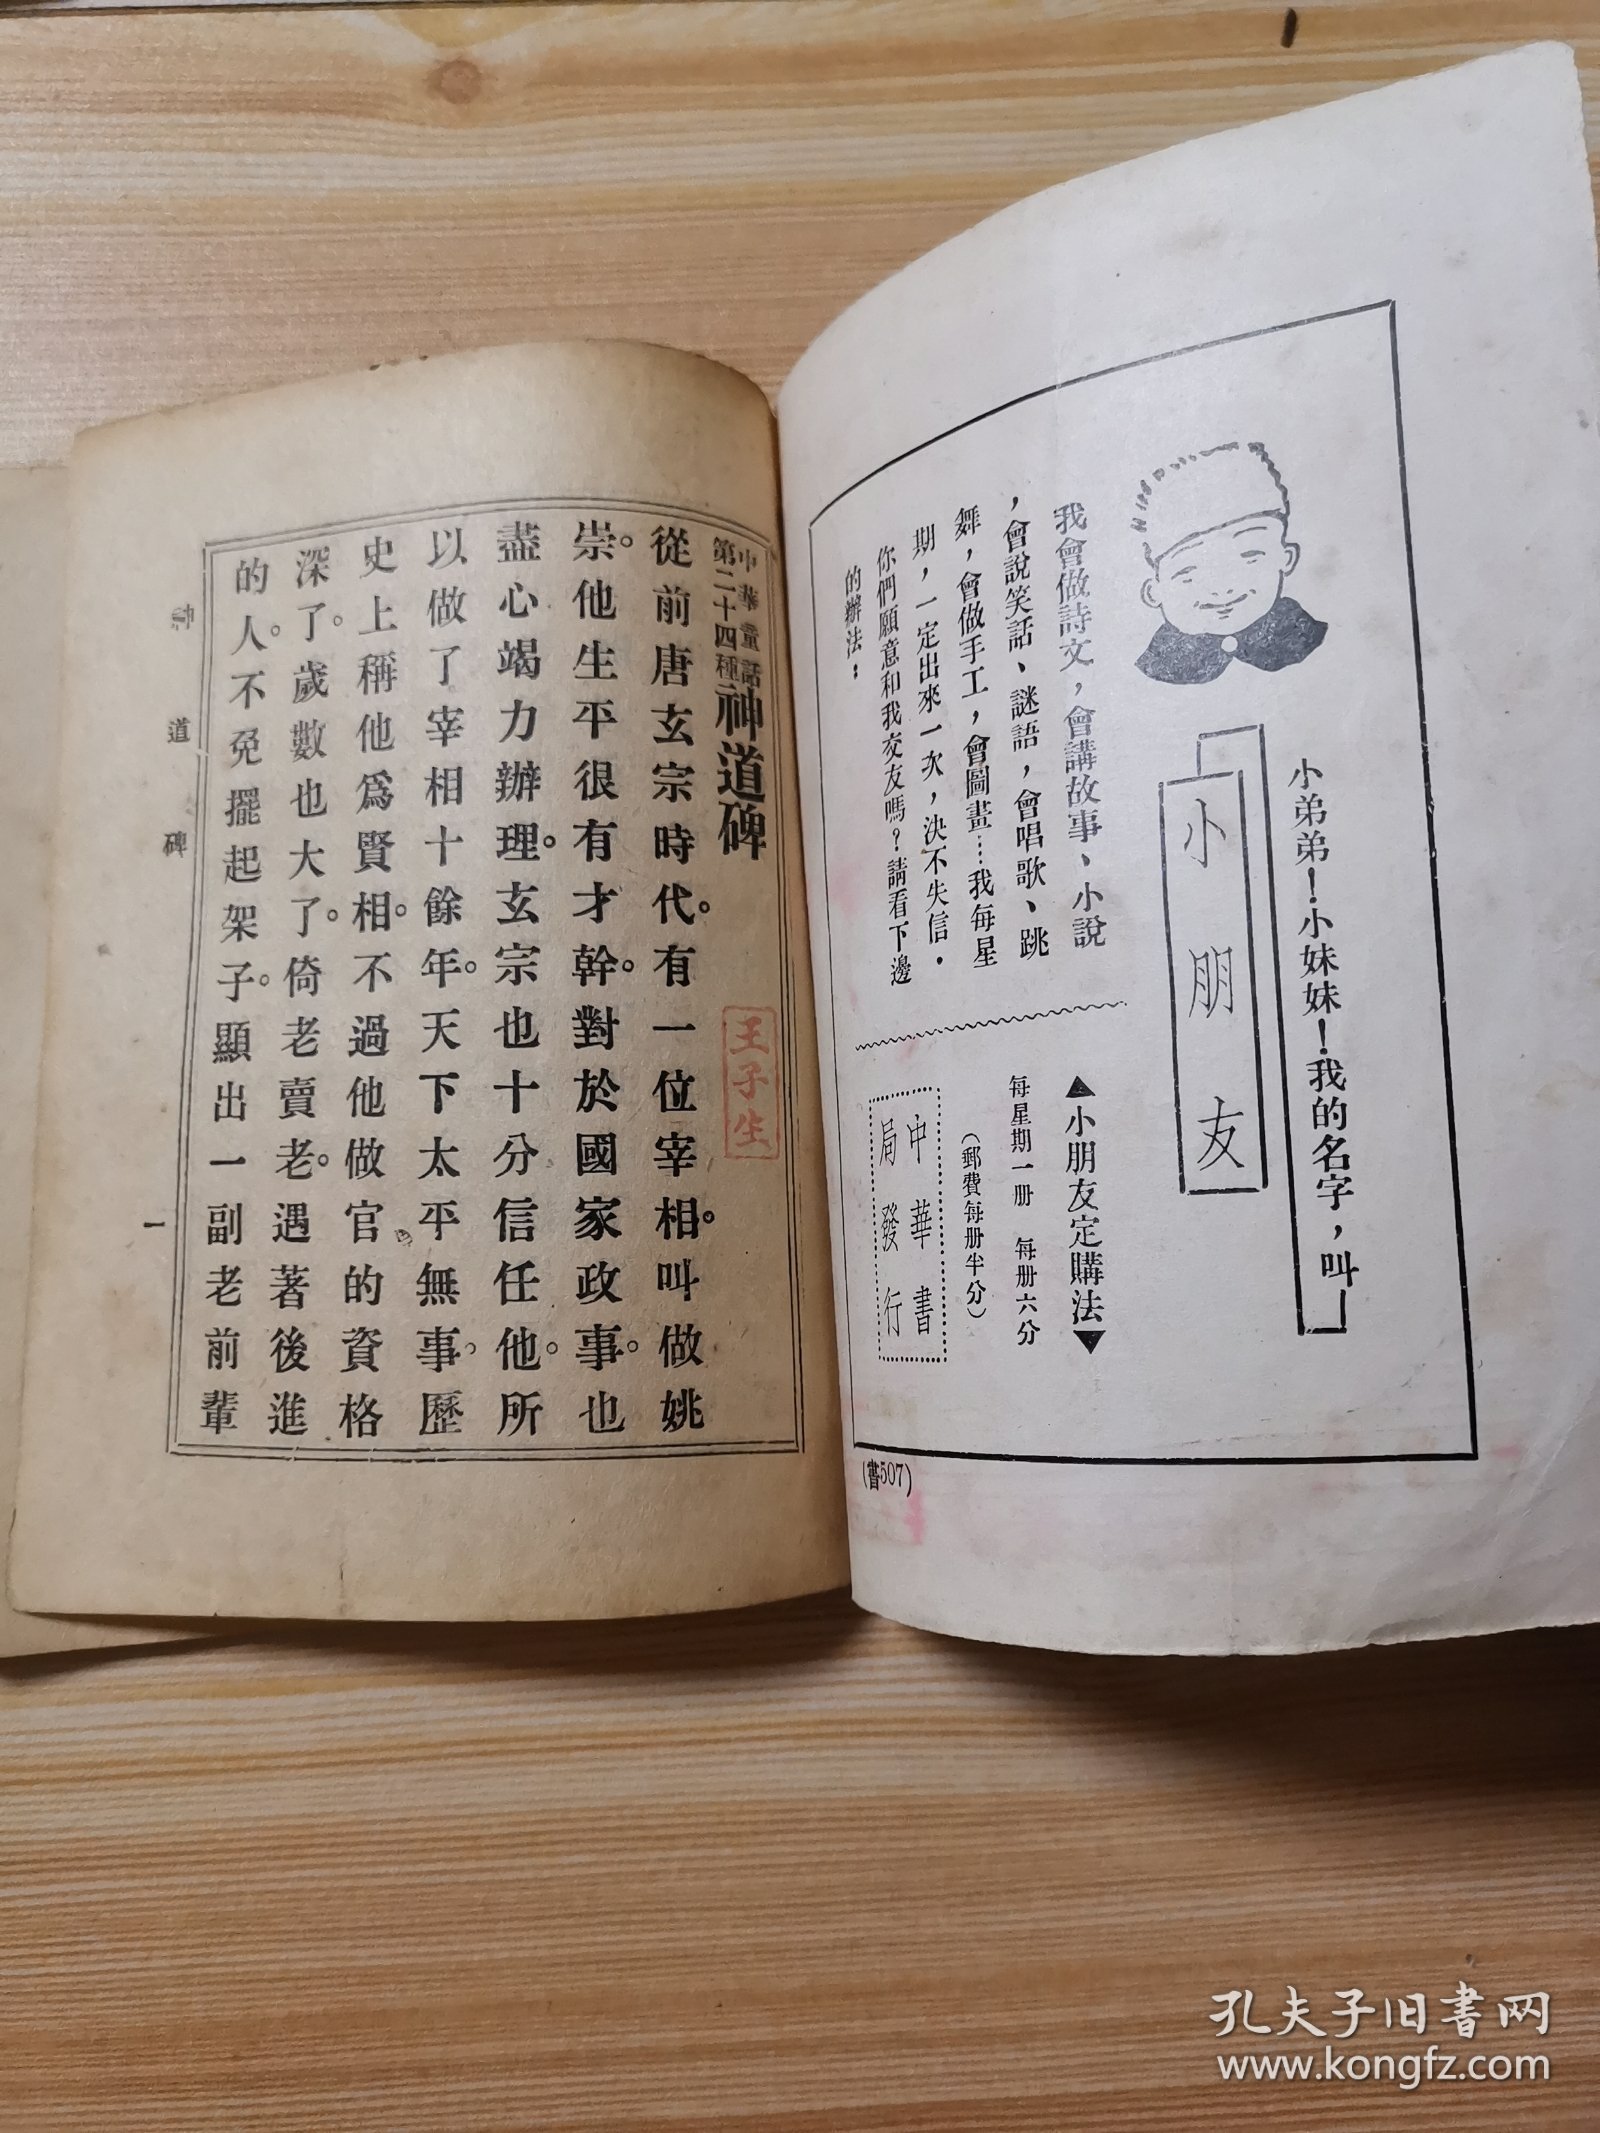 小弟弟！小妹妹！我的名字，叫—
小朋友
我會做詩文，會講故事、小說
，會說笑話、謎語，會唱歌、跳
舞，會做手工，會圖畫…我每星
期，一定出來一次，決不失信．
你們願意和我交友嗎？請看下邊
的辦法：
▲小朋友定購法▼
每星期一册　每册六分
（郵費每册半分）
中華書
局發行
(書507)
中華童話
第二十四種
神道碑
王子生
從前唐玄宗時代。有一位宰相。叫做姚
崇。他生平很有才幹。對於國家政事。也
盡心竭力辦理。玄宗也十分信任他。所
以做了宰相十餘年。天下太平無事。歷
史上稱他爲賢相。不過他做官的資格
深了。歲數也大了。倚老賣老。遇著後進
的人。不免擺起架子。顯出一副老前輩
神道碑
一
孔夫子旧书网
www.kongfz.com